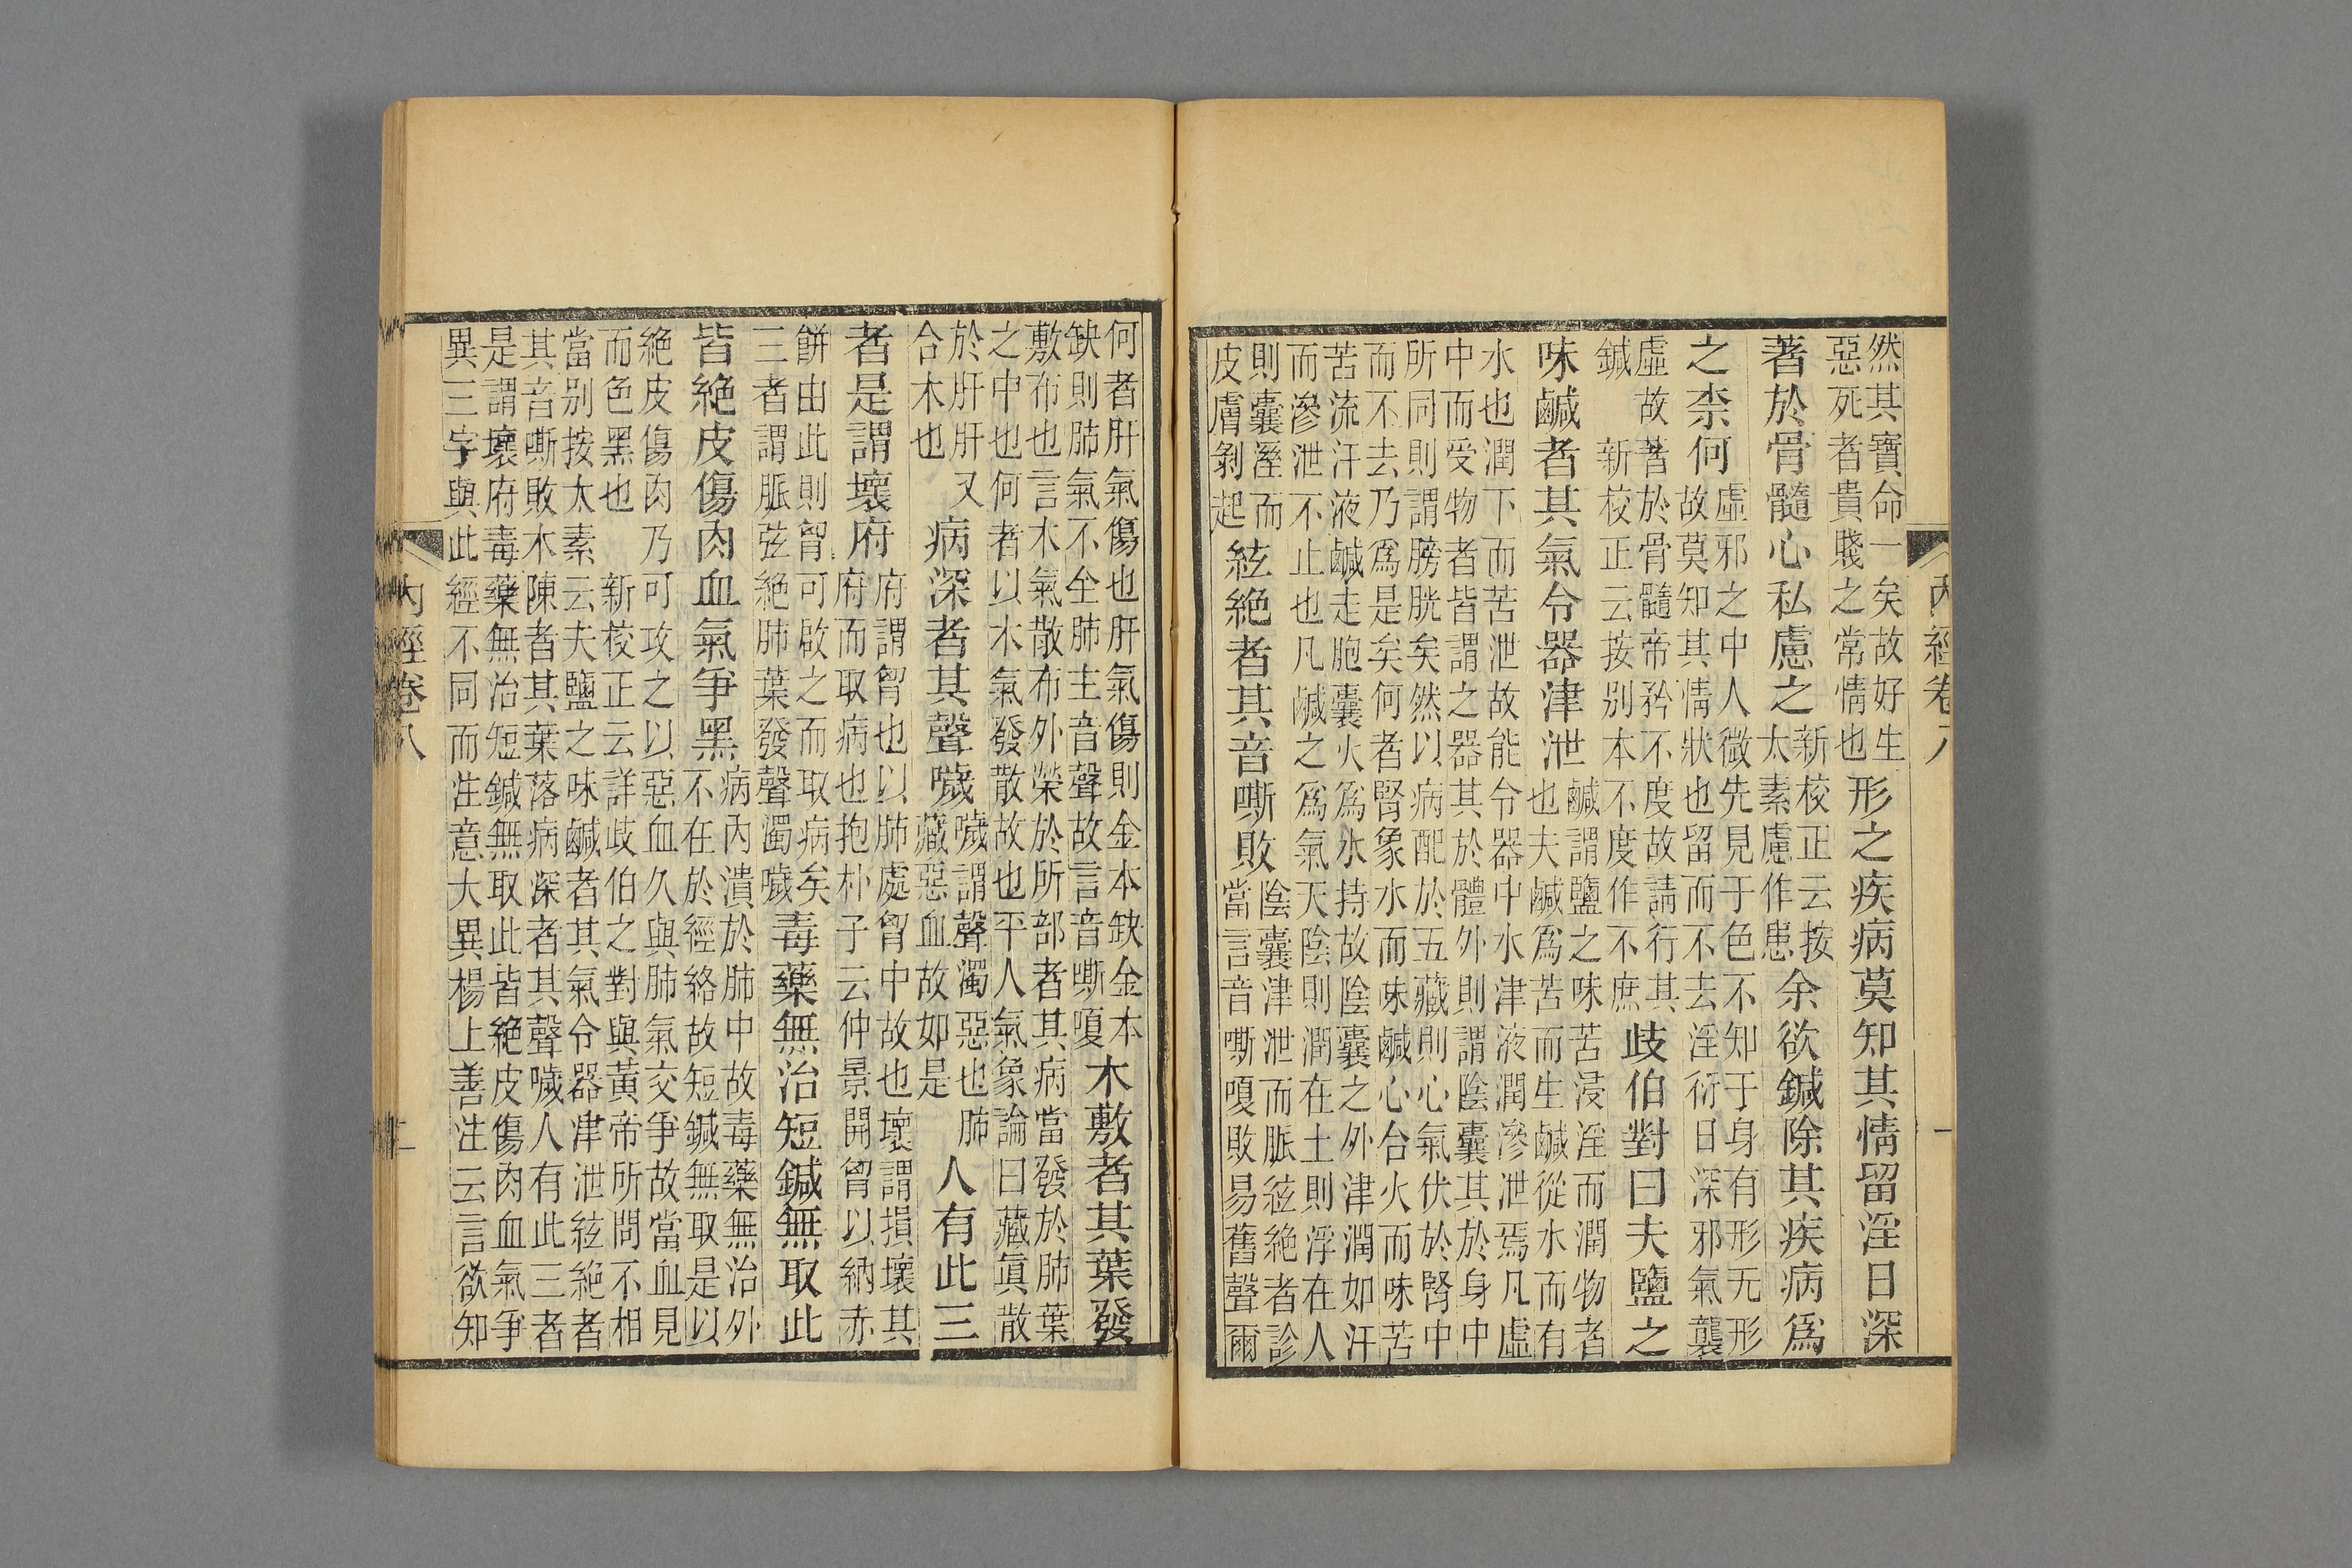 內經卷八
一
然其寶命一矣故好生
惡死者貴賤之常情也
形之疾病莫知其情留淫日深
著於骨髓心私慮之
新校正云按
太素慮作患
余欲鍼除其疾病爲
之柰何
虛邪之中人微先見于色不知于身有形无形
故莫知其情狀也留而不去淫衍日深邪氣襲
虛故著於骨髓帝矜不度故請行其
鍼 新校正云按别本不度作不庶
歧伯對曰夫鹽之
味鹹者其氣令器津泄
鹹謂鹽之味苦浸淫而潤物者
也夫鹹爲苦而生鹹從水而有
水也潤下而苦泄故能令器中水津液潤滲泄焉凡虛
中而受物者皆謂之器其於體外則謂陰囊其於身中
所同則謂膀胱矣然以病配於五藏則心氣伏於腎中
而不去乃爲是矣何者腎象水而味鹹心合火而味苦
苦流汗液鹹走胞囊火爲水持故陰囊之外津潤如汗
而滲泄不止也凡鹹之爲氣天陰則潤在土則浮在人
則囊溼而
皮膚剝起
絃絶者其音嘶敗
陰囊津泄而脈絃絶者診
當言音嘶嗄敗易舊聲爾
何者肝氣傷也肝氣傷則金本缺金本
缺則肺氣不全肺主音聲故言音嘶嗄
木敷者其葉發
敷布也言木氣散布外榮於所部者其病當發於肺葉
之中也何者以木氣發散故也平人氣象論曰藏眞散
於肝肝又
合木也
病深者其聲噦
噦謂聲濁惡也肺
藏惡血故如是
人有此三
者是謂壞府
府謂胷也以肺處胷中故也壞謂損壞其
府而取病也抱朴子云仲景開胷以納赤
餅由此則胷可啟之而取病矣
三者謂脈弦絶肺葉發聲濁噦
毒藥無治短鍼無取此
皆絶皮傷肉血氣爭黑
病內潰於肺中故毒藥無治外
不在於經絡故短鍼無取是以
絶皮傷肉乃可攻之以惡血久與肺氣交爭故當血見
而色黑也 新校正云詳歧伯之對與黃帝所問不相
當别按太素云夫鹽之味鹹者其氣令器津泄絃絶者
其音嘶敗木陳者其葉落病深者其聲噦人有此三者
是謂壞府毒藥無治短鍼無取此皆絶皮傷肉血氣爭
異三字與此經不同而注意大異楊上善注云言欲知
內經卷八
二